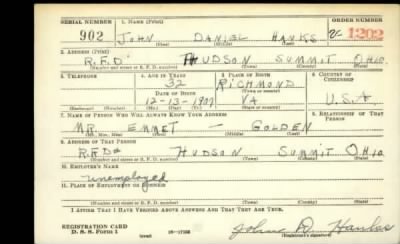 SERIAL NUMBER 1. NAME (Print) ORDER NUMBER
902 JOHN DANIEL HANKS 1202
(First) (Middle) (Last)
2. ADDRESS (Print)
R.F.D. HUDSON SUMMIT OHIO
(Number and street or R. F. D. number) (Town) (County) (State)
3. TELEPHONE 4. AGE IN YEARS 5. PLACE OF BIRTH 6. COUNTRY OF CITIZENSHIP
32 RICHMOND
DATE OF BIRTH (Town or county)
12-13-1907 VA U.S.A.
(Exchange) (Number) (Mo.) (Day) (Yr.) (State or country)
7. NAME OF PERSON WHO WILL ALWAYS KNOW YOUR ADDRESS 8. RELATIONSHIP OF THAT PERSON
MR. EMMET — GOLDEN
(Mr., Mrs., Miss) (First) (Middle) (Last)
9. ADDRESS OF THAT PERSON
R.F.D. HUDSON SUMMIT OHIO
(Number and street or R. F. D. number) (Town) (County) (State)
10. EMPLOYER'S NAME
unemployed
11. PLACE OF EMPLOYMENT OR BUSINESS
(Number and street or R. F. D. number) (Town) (County) (State)
I AFFIRM THAT I HAVE VERIFIED ABOVE ANSWERS AND THAT THEY ARE TRUE.
REGISTRATION CARD
D. S. S. Form 1 (over) 16-17105 (Registrant's signature)